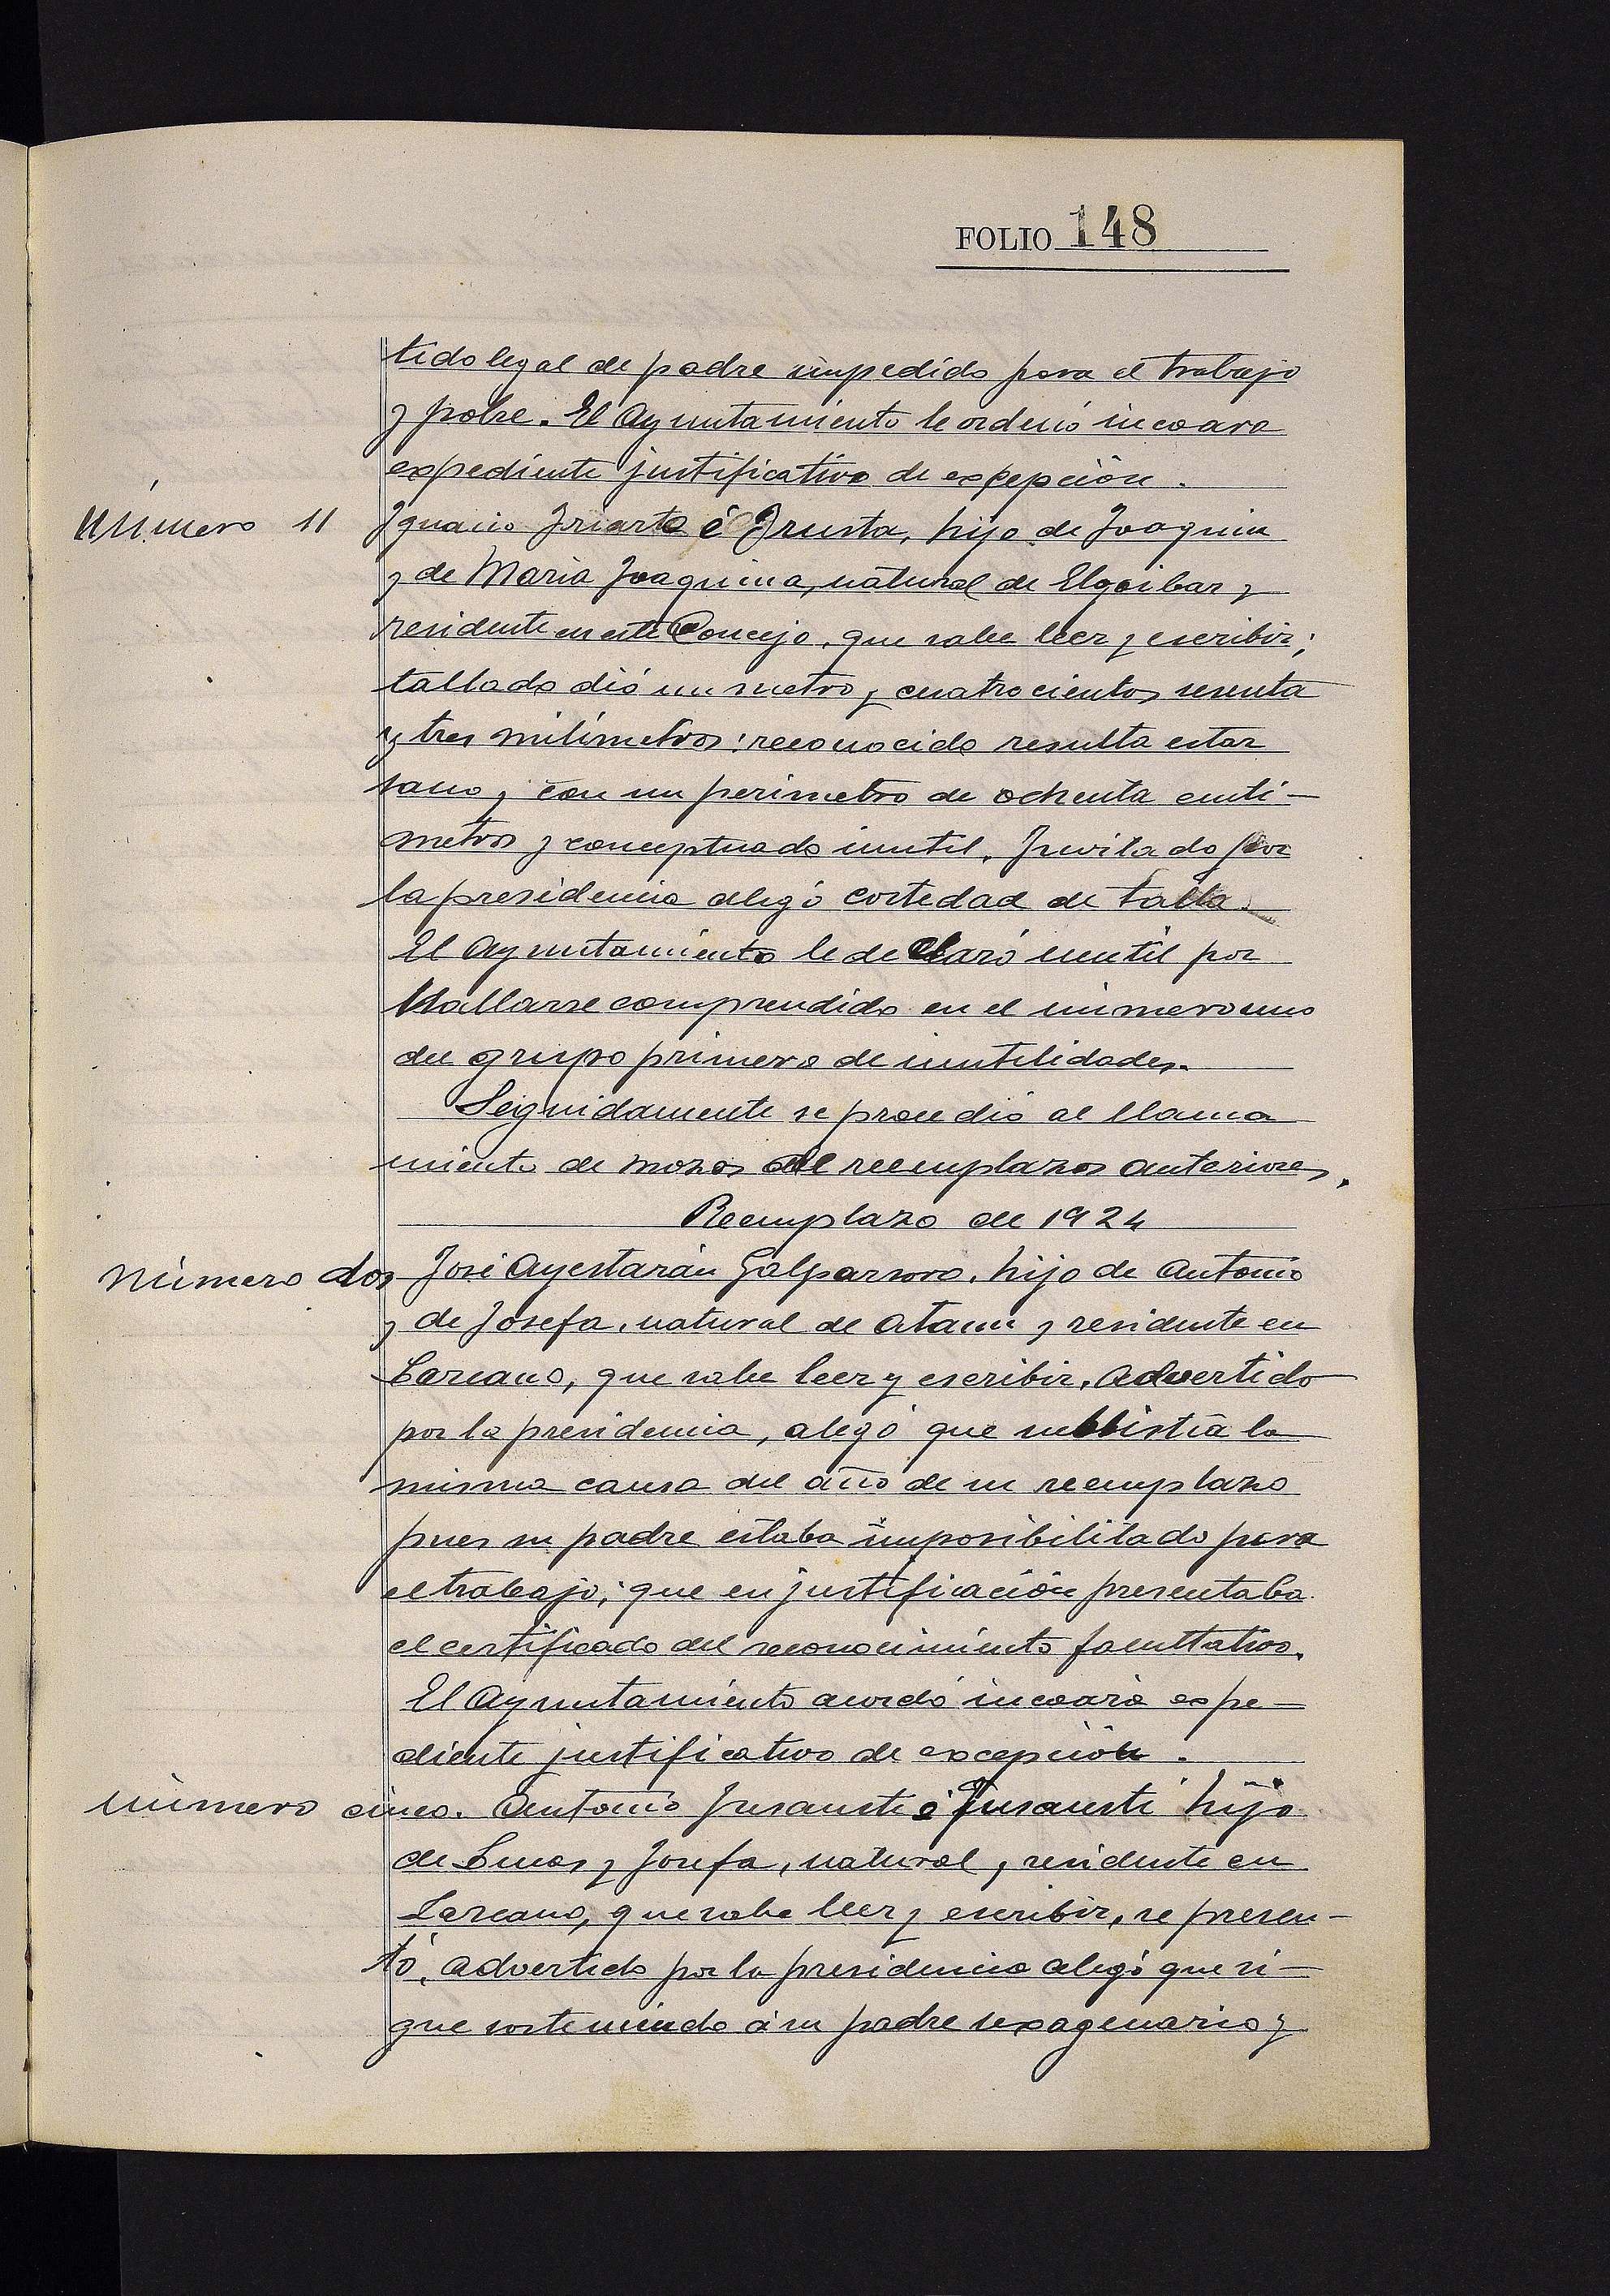 FOLIO 148
tido legal de padre impedido para el trabajo
y pobre. El Ayuntamiento le ordenó incoara
expediente justificativo de excepción.
Número 11 Ignacio Iriarte é Irusta, hijo de Joaquin
y de Maria Joaquina, natural de Elgoibar y
residente en este Concejo, que sabe leer y escribir;
tallado dió un metro y cuatrocientos sesenta
y tres milímetros: reconocido resulta estar
sano y con un perimetro de ochenta centi-
metros y conceptuado inutil. Invitado por
la presidencia alegó cortedad de talla.
El Ayuntamiento le declaró inutil por
hallarse comprendido en el número uno
del grupo primero de inutilidades.
Seguidamente se procedió al llama
miento de mozos del reemplazos anteriores.
Reemplazo de 1924
Número dos José Ayestarán Galparsoro, hijo de Antonio
y de Josefa, natural de Ataun y residente en
Lazcano, que sabe leer y escribir. Advertido
por la presidencia, alegó que subsistia la
misma causa del año de su reemplazo
pues su padre estaba imposibilitado para
el trabajo; que en justificación presentaba
el certificado del reconocimiento facultativo.
El Ayuntamiento acordó incoara expe-
diente justificativo de excepción.
número cinco. Antonio Insausti é Insausti hijo
de Lucas y Josefa, natural y residente en
Lazcano, que sabe leer y escribir, se presen-
tó. Advertido por la presidencia alegó que si-
gue sosteniendo á su padre sexagenario y